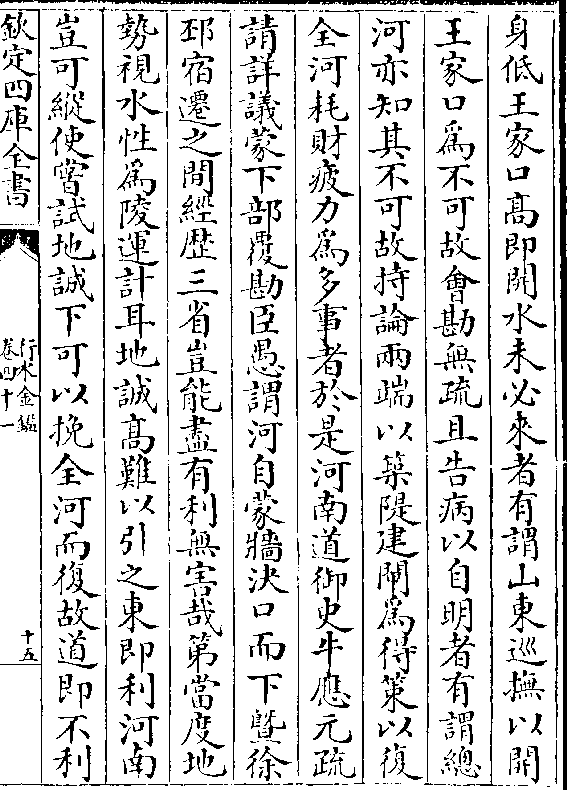 身低王家口高即開水未必來者有謂山東巡撫以開
王家口為不可故會勘無疏且告病以自明者有謂總
河亦知其不可故持論兩端以築隄建閘為得策以復
全河耗財疲力為多事者於是河南道御史牛應元疏
請詳議蒙下部覆勘臣愚謂河自蒙牆決口而下暨徐
邳宿遷之間經歴三省豈能盡有利無害哉第當度地
勢視水性為陵運計耳地誠高難以引之東即利河南
豈可縱使嘗試地誠下可以挽全河而復故道即不利
欽定四庫全書
行水金鑑
卷四十一
十五